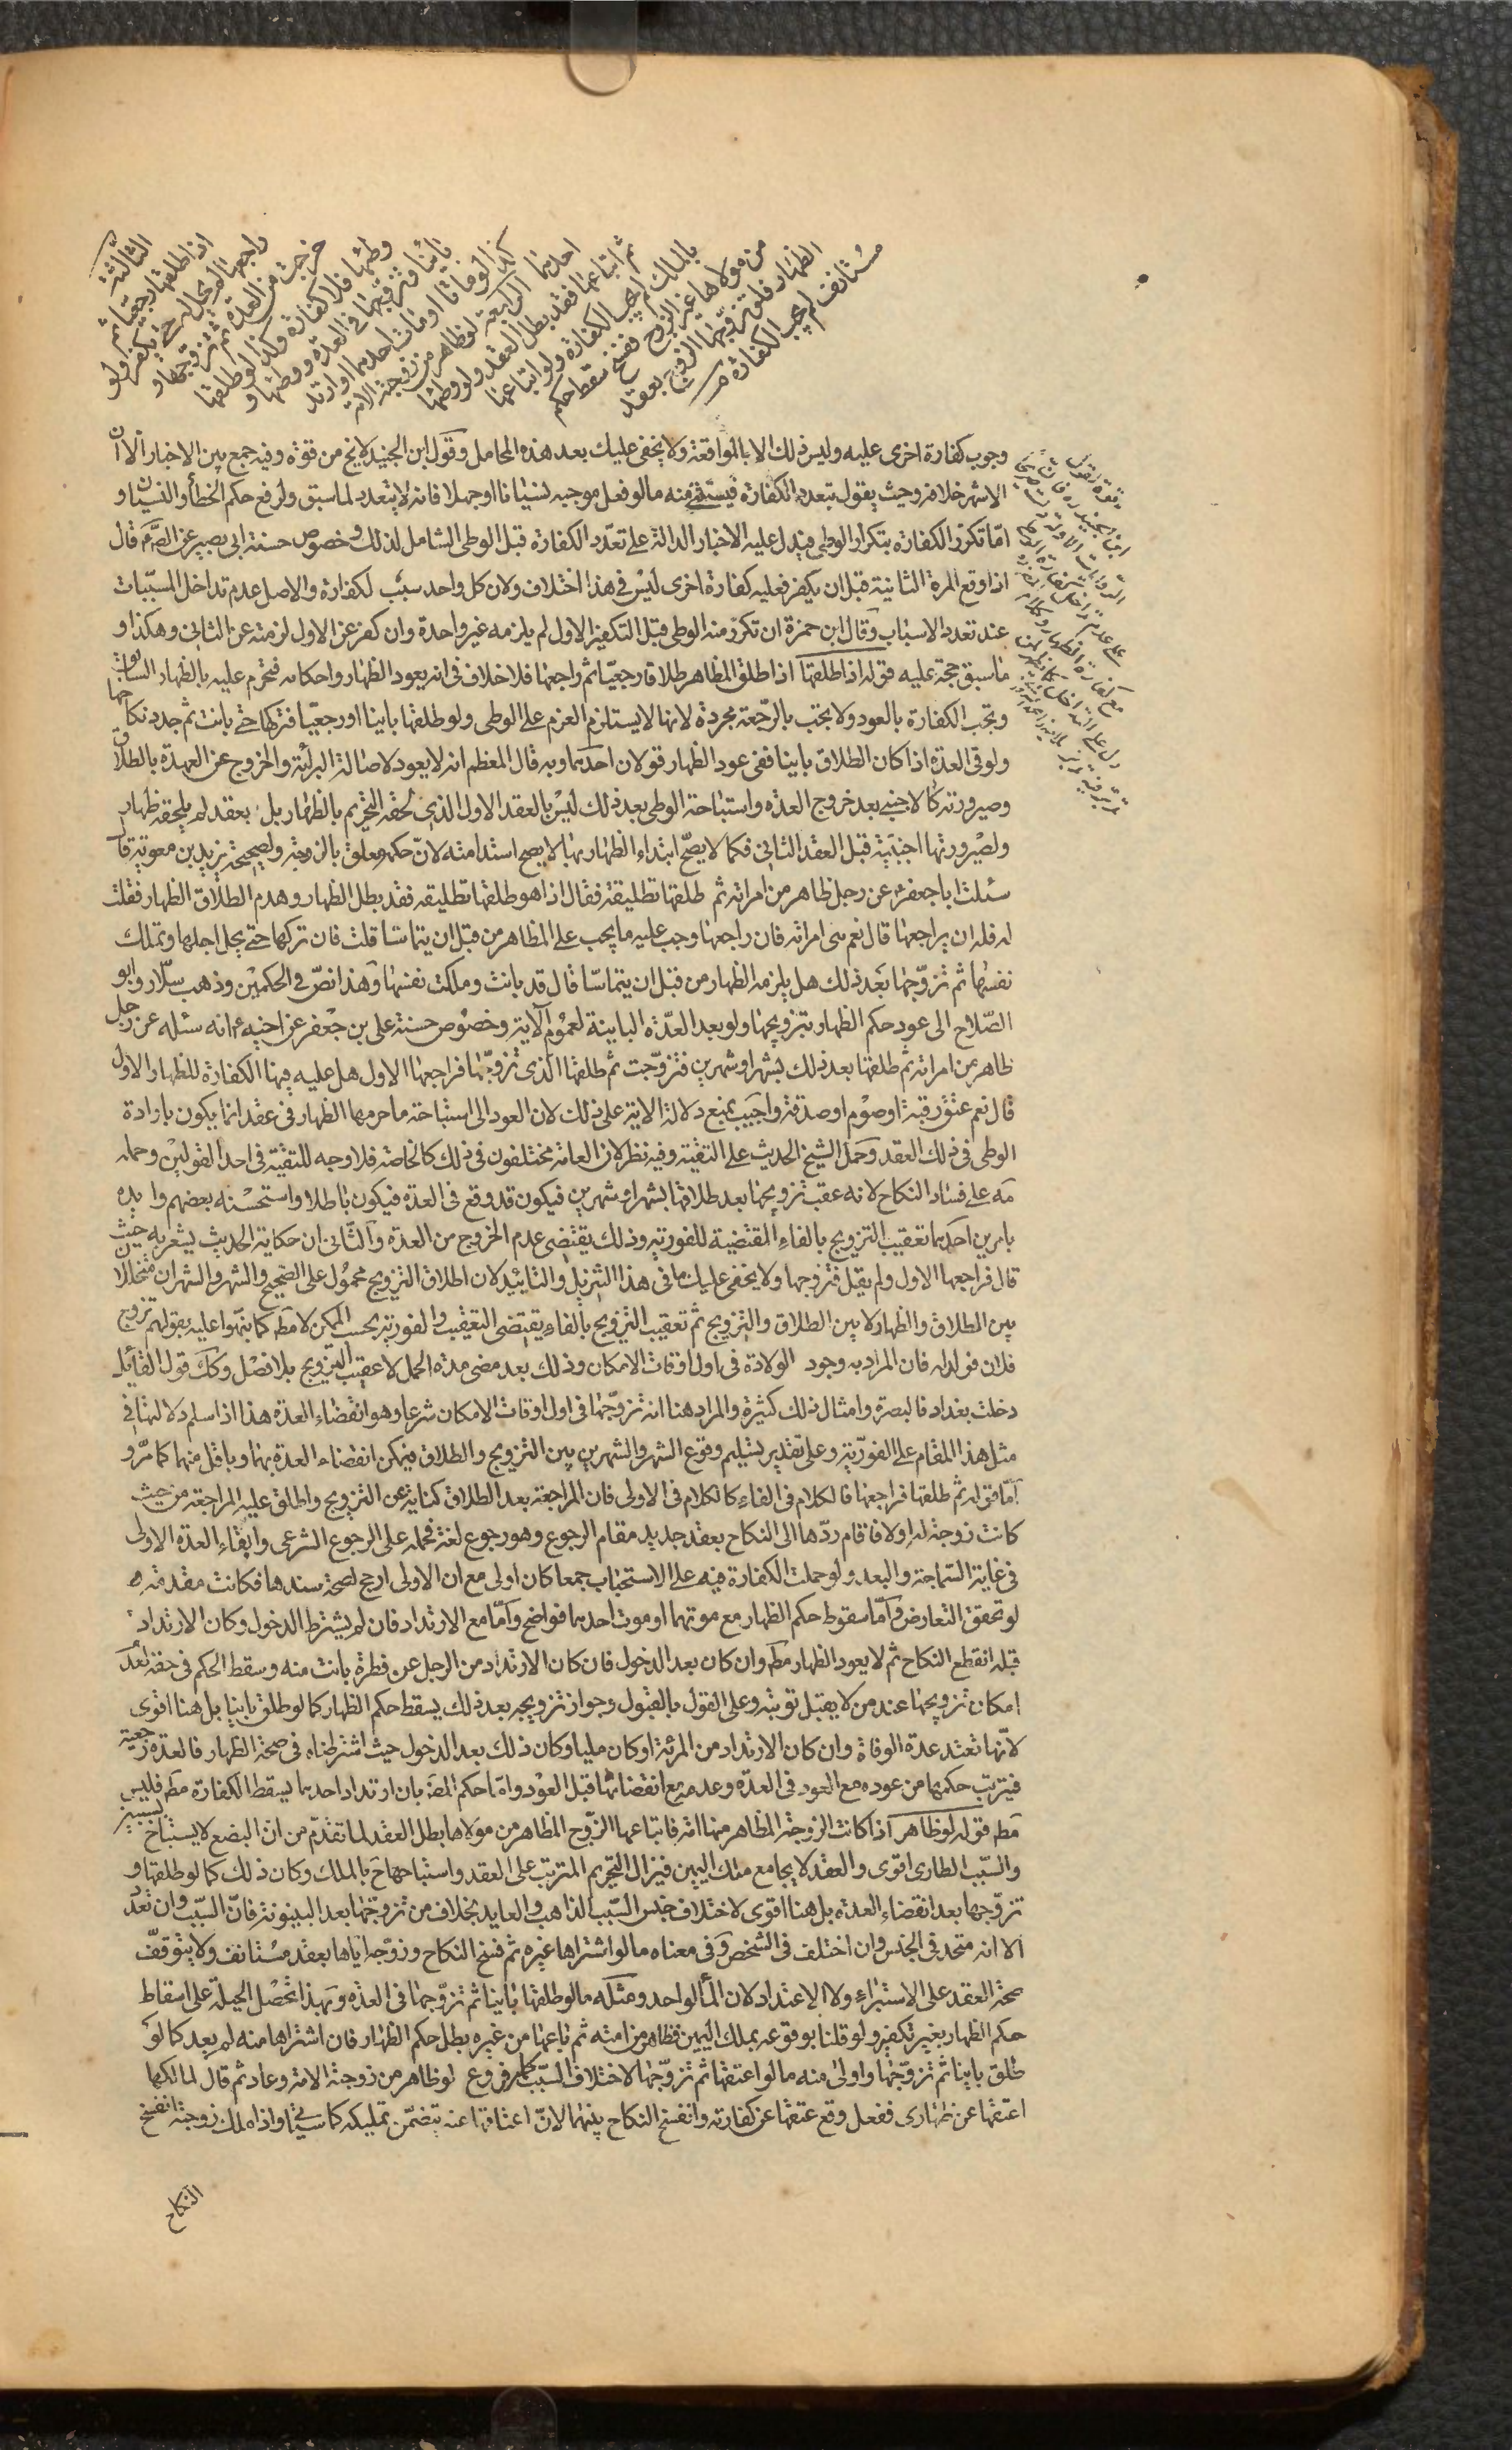 الثالثة
اذا طلقها رجعيّا ثم
راجعها لم يحل له حتى يكفّر ولو
خرجت من العدة ثم تزوجها و
وطئها فلا كفارة وكذا لو طلقها
بائنا وتزوّجها في العدة ووطئها و
كذا لو ماتا او مات احدهما او ارتد
احدهما الرابعة لو ظاهر من زوجته الامة
ثم ابتاعها فقد بطل العقد ولو وطئها
بالملك لم يجب الكفارة ولو ابتاعها
من مولاها غير الزوج ففسخ سقط حكم
الظهار فلو تزوّجها الزوج بعقد
مستانف لم يجب الكفارة
وجوب كفارة اخرى عليه وليس ذلك الا بالمواقعة ولا يخفى عليك بعد هذه المحامل وقول ابن الجنيد لا يخ من قوة وفيه جمع بين الاخبار الا ان
الاشهر خلافه وحيث يقول بتعدد الكفارة فيستثنى منه ما لو فعل موجبه نسيانا او جهلا فانه لا يتعدد لما سبق ولرفع حكم الخطأ والنسيان و
امّا تكرّر الكفارة بتكرار الوطى فيدل عليه الاخبار الدالة على تعدّد الكفارة قبل الوطى الشامل لذلك وخصوص حسنة ابى بصير عن الصّم قال
اذا وقع المرة الثانية قبل ان يكفر فعليه كفارة اخرى ليس في هذا اختلاف ولان كل واحد سبب لكفارة والاصل عدم تداخل المسبّبات
عند تعدد الاسباب وقال ابن حمزة ان تكرّر منه الوطى قبل التكفير الاول لم يلزمه غير واحدة وان كفر عن الاول لزمته عن الثاني وهكذا و
ما سبق حجة عليه قوله اذا طلقها اذا طلق المظاهر طلاقا رجعيّا ثم راجعها فلا خلاف في انه يعود الظهار واحكامه فتحرم عليه بالظهار السابق
وتجب الكفارة بالعود ولا يجب بالرّجعة مجردة لانها لا يستلزم العزم على الوطى ولو طلقها باينا او رجعيّا فتركها حتى بانت ثم جدد نكاحها
ولو في العدة اذا كان الطلاق باينا ففي عود الظهار قولان احدهما وبه قال المعظم انه لا يعود لاصالة البرائة والخروج عن العهدة بالطلاق
وصيرورته كالاجنبي بعد خروج العدّة واستباحة الوطى بعد ذلك ليس بالعقد الاول الذي لحقه التحريم بالظهار بل بعقد لم يلحقه ظهار
ولصيرورتها اجنبيّة قبل العقد الثاني فكما لا يصحّ ابتداء الظهار بها لا يصح استدامته لانّ حكمه معلق بالزوجية ولصحيحة يزيد بن معوية قال
سئلت ابا جعفر ع عن رجل ظاهر من امراته ثم طلقها تطليقة فقال اذا هو طلقها تطليقه فقد بطل الظهار وهدم الطلاق الظهار فقلت
له فله ان يراجعها قال نعم هى امراته فان راجعها وجب عليه ما يجب على المظاهر من قبل ان يتماسّا قلت فان تركها حتى يحل اجلها وتملك
نفسها ثم تزوّجها بعد ذلك هل يلزمه الظهار من قبل ان يتماسّا قال قد بانت وملكت نفسها وهذا نصّ في الحكمين وذهب سلّار وابو
الصّلاح الى عود حكم الظهار بتزويجها ولو بعد العدّة الباينة لعموم الآية وخصوص حسنة على بن جعفر عن اخيه ع انه سئله عن رجل
ظاهر من امراته ثم طلقها بعد ذلك بشهر او شهرين فتزوّجت ثم طلقها الذى تزوجها فراجعها الاول هل عليه فيها الكفارة للظهار الاول
قال نعم عتق رقبة او صوم او صدقة واجيب بمنع دلالة الاية على ذلك لان العود الى استباحة ما حرمها الظهار في عقد انما يكون بارادة
الوطى في ذلك العقد وحمل الشيخ الحديث على التقيّة وفيه نظر لان العامة مختلفون في ذلك كالخاصة فلا وجه للتقيّة في احد القولين وحمله
مه على فساد النكاح لانه عقب تزويجها بعد طلاقها بشهر او شهرين فيكون قد وقع في العدة فيكون باطلا واستحسنه بعضهم وايده
بامرين احدهما تعقيب التزويج بالفاء المقتضية للفورية وذلك يقتضى عدم الخروج من العدة والثّانى ان حكاية الحديث يشعر به حيث
قال فراجعها الاول ولم يقل فتزوجها ولا يخفى عليك ما في هذا التنزيل والتاييد لان اطلاق التزويج محمول على الصحيح والشهر والشهران متخلّلا
بين الطلاق والظهار لا بين الطلاق والتزويج ثم تعقيب التزويج بالفاء يقتضى التعقيب والفورية بحسب الممكن لا مط كما نبّهوا عليه بقولهم تزوج
فلان فولد له فان المراد به وجود الولادة في اول اوقات الامكان وذلك بعد مضى مدة الحمل لا عقيب التزويج بلا فصل وكك قول القائل
دخلت بغداد فالبصرة وامثال ذلك كثيرة والمراد هنا انه تزوّجها في اول اوقات الامكان شرعا وهو انقضاء العدة هذا اذا سلم دلالتها في
مثل هذا المقام على الفوريّة وعلى تقدير تسليم وقوع الشهر والشهرين بين التزويج والطلاق فيمكن انقضاء العدة بهما وباقل منهما كما مرّ و
امّا قوله ثم طلقها فراجعها فالكلام في الفاء كالكلام في الاولى فان المراجعة بعد الطلاق كناية عن التزويج واطلق عليه المراجعة من حيث
كانت زوجة له اولا فاقام ردّها الى النكاح بعقد جديد مقام الرجوع وهو رجوع لغة فحمله على الرجوع الشرعى وابقاء العدة الاولى
في غاية السّماجة والبعد ولو حملت الكفارة فيه على الاستحباب جمعا كان اولى مع ان الاولى ارجح لصحة سندها فكانت مقدمة
لو تحقق التعارض وامّا سقوط حكم الظهار مع موتهما او موت احدهما فواضح وامّا مع الارتداد فان لم يشترط الدخول وكان الارتداد
قبله انقطع النكاح ثم لا يعود الظهار مط وان كان بعد الدخول فان كان الارتداد من الرجل عن فطرة بانت منه وسقط الحكم في حقه لعدم
امكان تزويجها عند من لا يقبل توبته وعلى القول بالقبول وجواز تزويجه بعد ذلك يسقط حكم الظهار كما لو طلق باينا بل هنا اقوى
لانّها تعتد عدة الوفاة وان كان الارتداد من المرئة او كان مليا وكان ذلك بعد الدخول حيث اشترطناه في صحة الظهار فالعدة رجعية
فيترتب حكمها من عوده مع العود في العدّة وعدمه مع انقضائها قبل العود وامّا حكم المصَ بان ارتداد احدهما يسقط الكفارة مط فليس
مط قوله لو ظاهر اذا كانت الزوجة المظاهر منها امة فابتاعها الزّوج المظاهر من مولاها بطل العقد لما تقدّم من ان البضع لا يستباح بسببين
والسّبب الطارى اقوى والعقد لا يجامع ملك اليمين فيزال التحريم المترتب على العقد واستباحها ح بالملك وكان ذلك كما لو طلقها و
تزوّجها بعد انقضاء العدة بل هنا اقوى لاختلاف جنس السّبب الذاهب والعايد بخلاف من تزوجها بعد البينونة فانّ السّبب وان تعدّد
الا انه متحد في الجنس وان اختلف في الشخص وفي معناه ما لو اشتراها غيره ثم فسخ النكاح وزوّجه اياها بعقد مستانف ولا يتوقّف
صحة العقد على الاستبراء ولا الاعتداد لان الماء لواحد ومثله ما لو طلقها باينا ثم تزوّجها في العدّة وبهذا تحصل الحيلة على اسقاط
حكم الظهار بغير تكفير ولو قلنا بوقوعه بملك اليمين فظاهر من امته ثم باعها من غيره بطل حكم الظهار فان اشتراها منه لم يعد كما لو
طلق باينا ثم تزوّجها واولى منه ما لو اعتقها ثم تزوّجها لاختلاف السّبب كما مر فروع لو ظاهر من زوجته الامة وعاد ثم قال لمالكها
اعتقها عن ظهارى ففعل وقع عتقها عن كفارته وانفسخ النكاح بينهما لانّ اعتاقها عنه يتضمّن تمليكه كما سيأتي واذا ملك زوجته انفسخ
النكاح